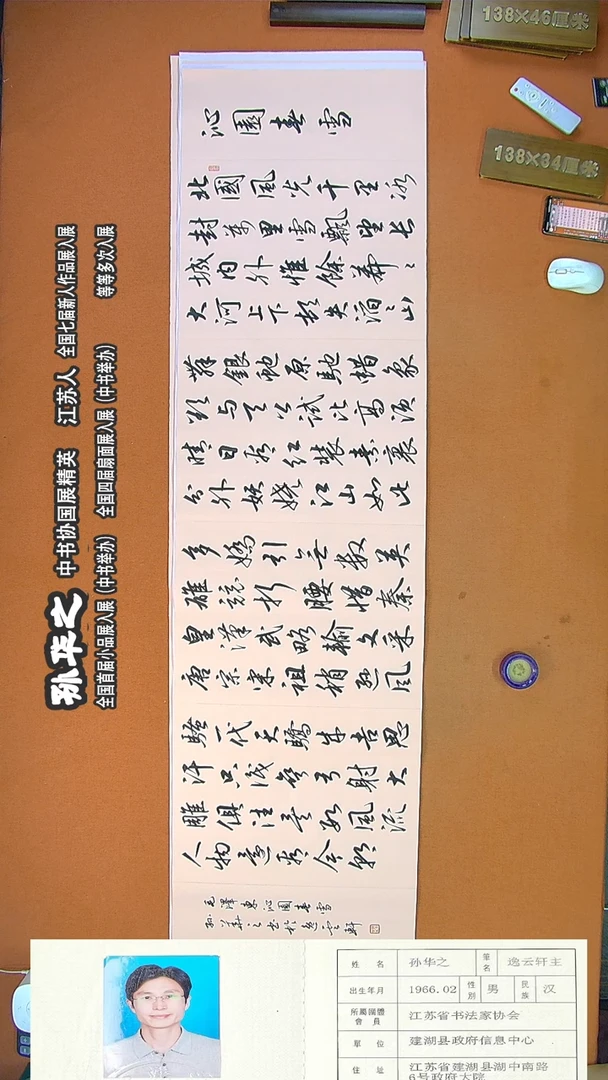 138×46厘米
138×34厘米
沁園春雪
北國風光千里冰
封萬里雪飄望长
城内外惟餘莽々
大河上下頓失滔々山
舞銀蛇原馳蜡象
欲与天公試比高須
晴日看红装素裹
分外妖娆江山如此
多嬌引無数英
雄競折腰惜秦
皇漢武略輸文采
唐宗宋祖稍遜風
騷一代天驕成吉思
汗只识彎弓射大
雕俱往矣数風流
人物還看今朝
毛澤東沁園春雪
孫華之書於逸雲軒
孙华之 中书协国展精英 江苏人 全国七届新人作品展入展
全国首届小品展入展（中书举办） 全国四届扇面展入展（中书举办） 等等多次入展
姓名 孙华之 笔名 逸云轩主
出生年月 1966.02 性别 男 民族 汉
所屬團體會員 江苏省书法家协会
單位 建湖县政府信息中心
住址 江苏省建湖县湖中南路6号政府大院